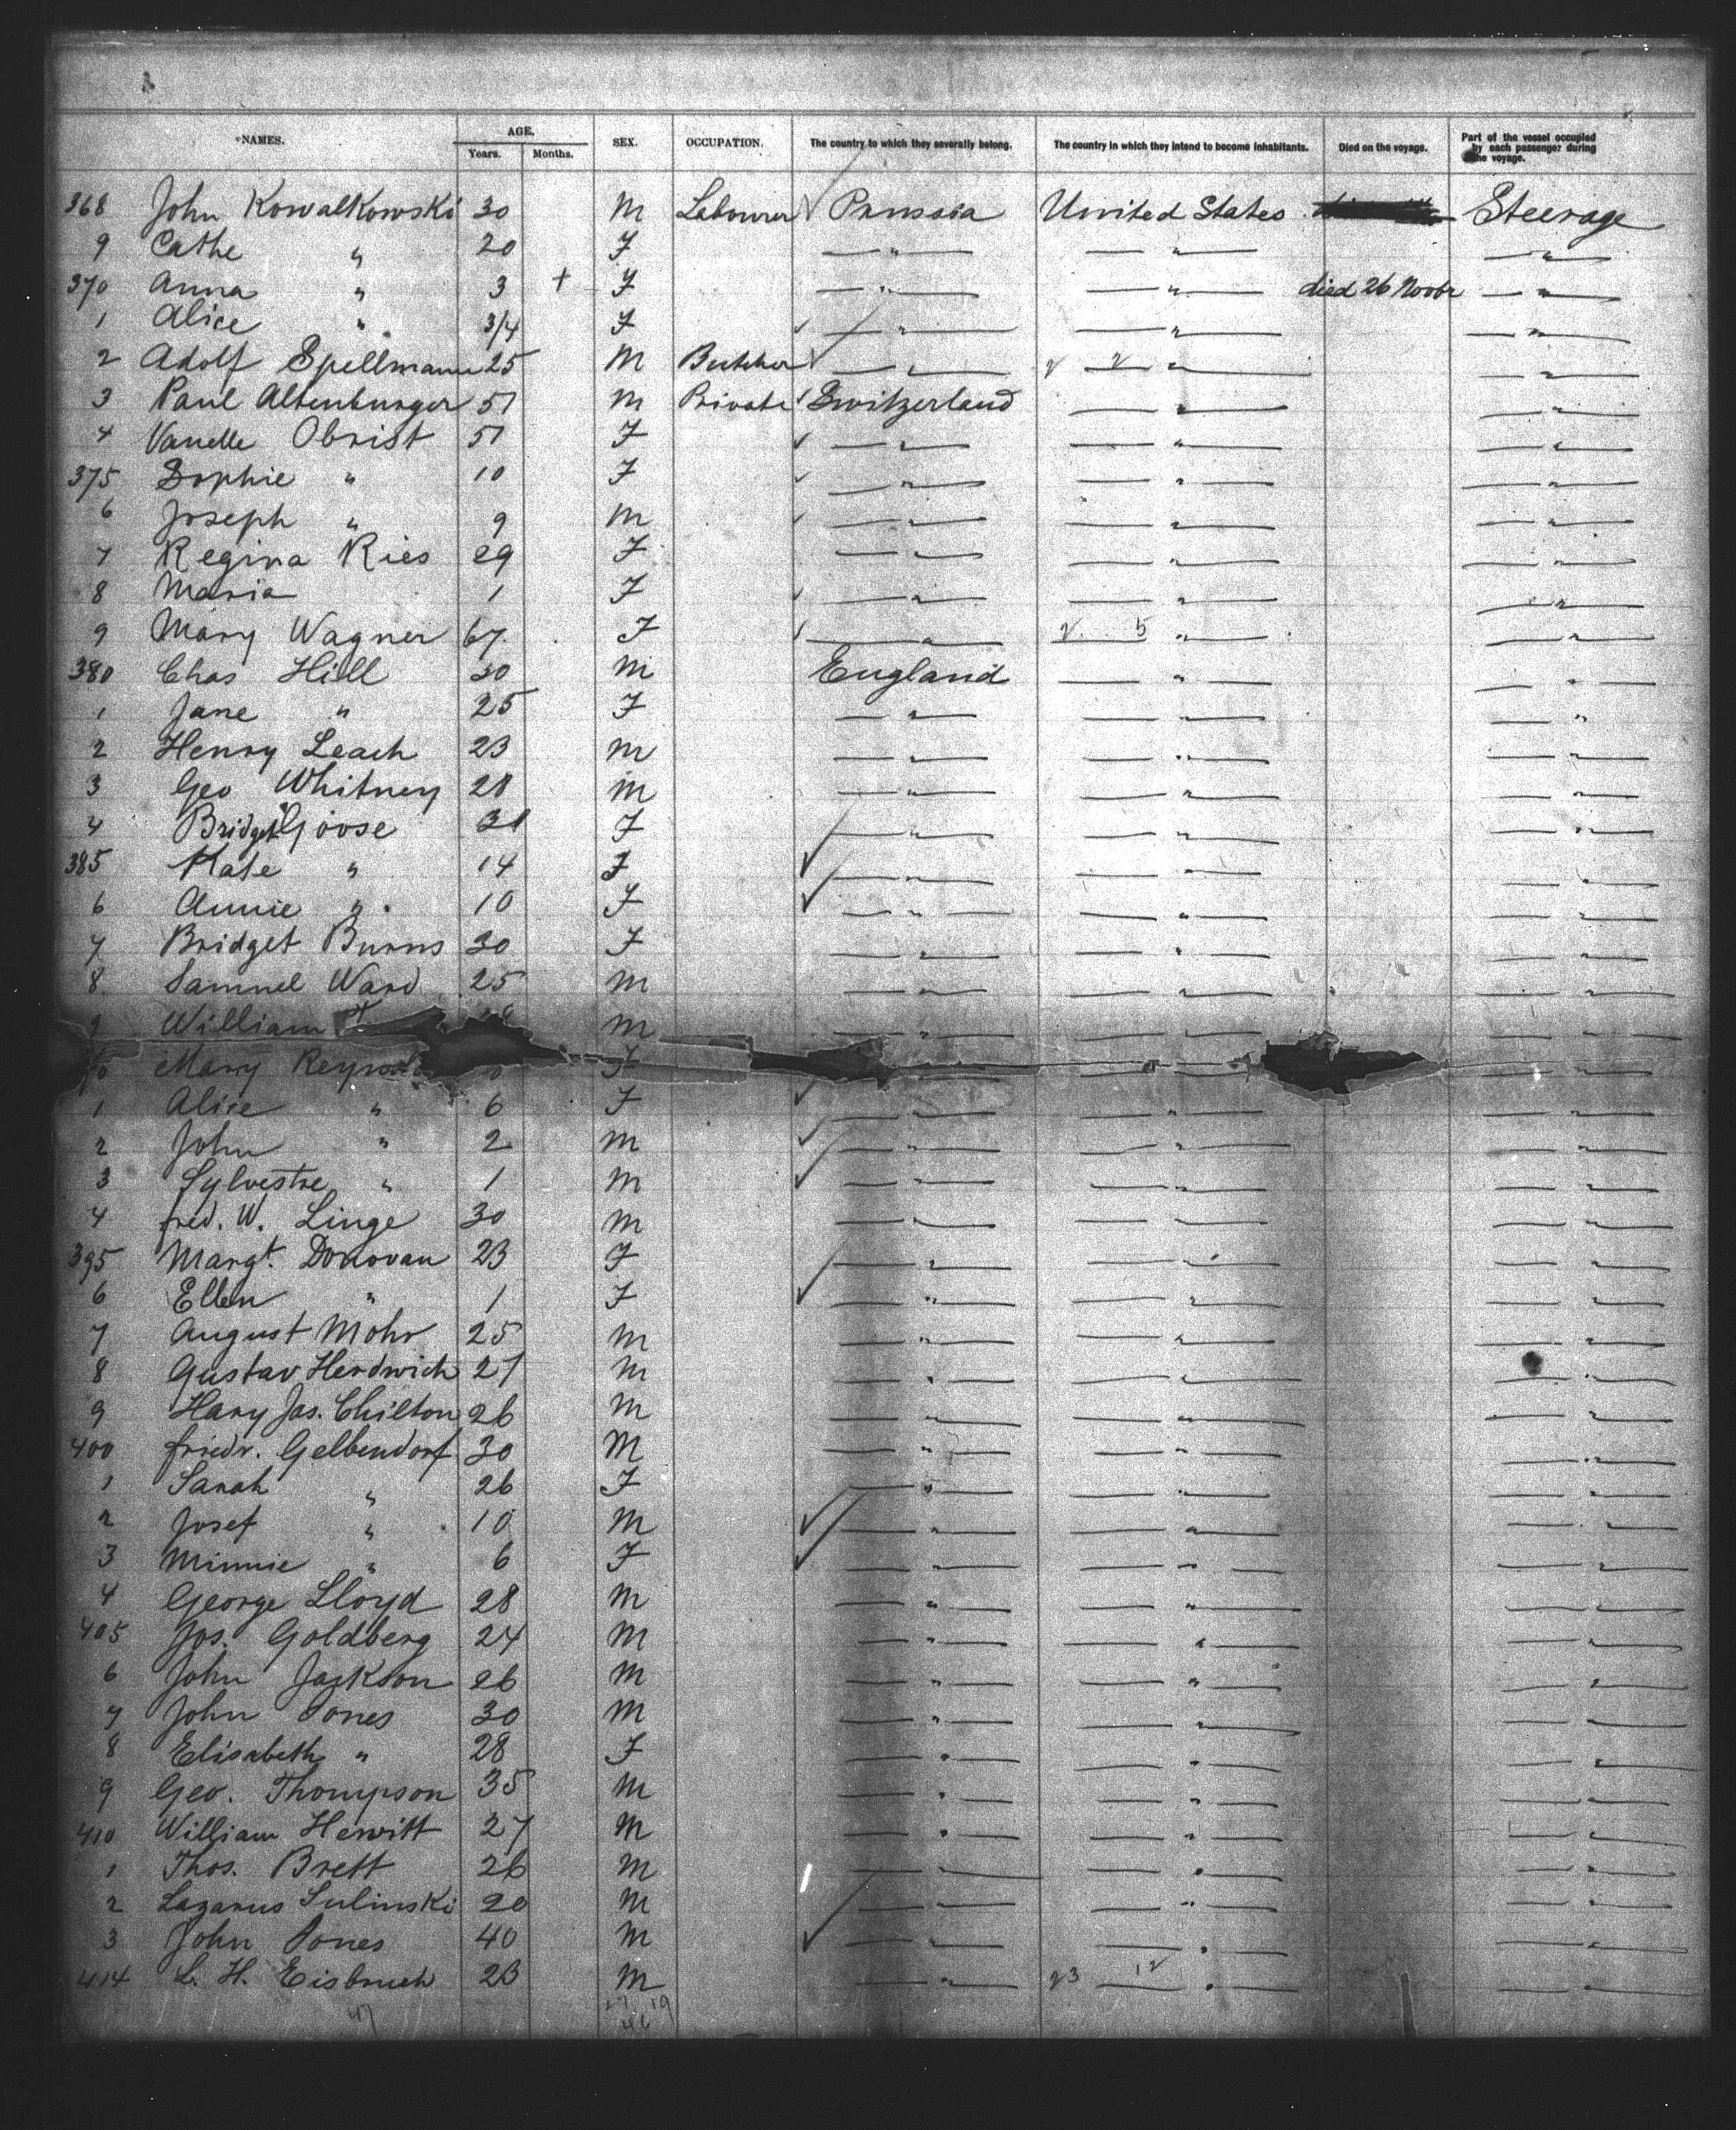 NAMES. AGE. Years. Months. SEX. OCCUPATION. The country to which they severally belong. The country in which they intend to become inhabitants. Died on the voyage. Part of the vessel occupied by each passenger during the voyage.
368 John Kowalkowski 30 M Labourer Prussia United States Steerage
9 Cathe " 20 F " " "
370 Anna " 3 + F " " died 26 Novbr "
1 Alice " 3/4 F " " "
2 Adolf Spellmann 25 M Butcher " 2 2 " "
3 Paul Altenburger 51 M Private Switzerland " "
4 Vanelle Obrist 51 F " " "
375 Sophie " 10 F " " "
6 Joseph " 9 M " " "
7 Regina Ries 29 F " " "
8 Maria 1 F " " "
9 Mary Wagner 67 F " 2 5 " "
380 Chas Hill 30 M England " "
1 Jane " 25 F " " "
2 Henry Leach 23 M " " "
3 Geo Whitney 28 M " " "
4 Bridget Goose F " " "
385 Kate " 14 F " " "
6 Annie " 10 F " " "
7 Bridget Burns 30 F " " "
8 Samuel Ward 25 M " " "
9 William M " " "
Mary F " " "
1 Alice " 6 F " " "
2 John " 2 M " " "
3 Sylvestre " 1 M " " "
4 fred. W. Linge 30 M " " "
395 Margt. Donovan 23 F " " "
6 Ellen " 1 F " " "
7 August Mohr 25 M " " "
8 Gustav Herdwich 21 M " " "
9 Harry Jas. Chilton 26 M " " "
400 friedr. Gelbendorf 30 M " " "
1 Sarah " 26 F " " "
2 Josef " 10 M " " "
3 Minnie " 6 F " " "
4 George Lloyd 28 M " " "
405 Jos. Goldberg 24 M " " "
6 John Jackson 26 M " " "
7 John Jones 30 M " " "
8 Elisabeth " 28 F " " "
9 Geo. Thompson 35 M " " "
410 William Hewitt 27 M " " "
1 Thos. Brett 26 M " " "
2 Lazarus Sulinski 20 M " " "
3 John Jones 40 M " " "
414 L. H. Eisbruch 23 M " 23 12 " "
47 27 19
46